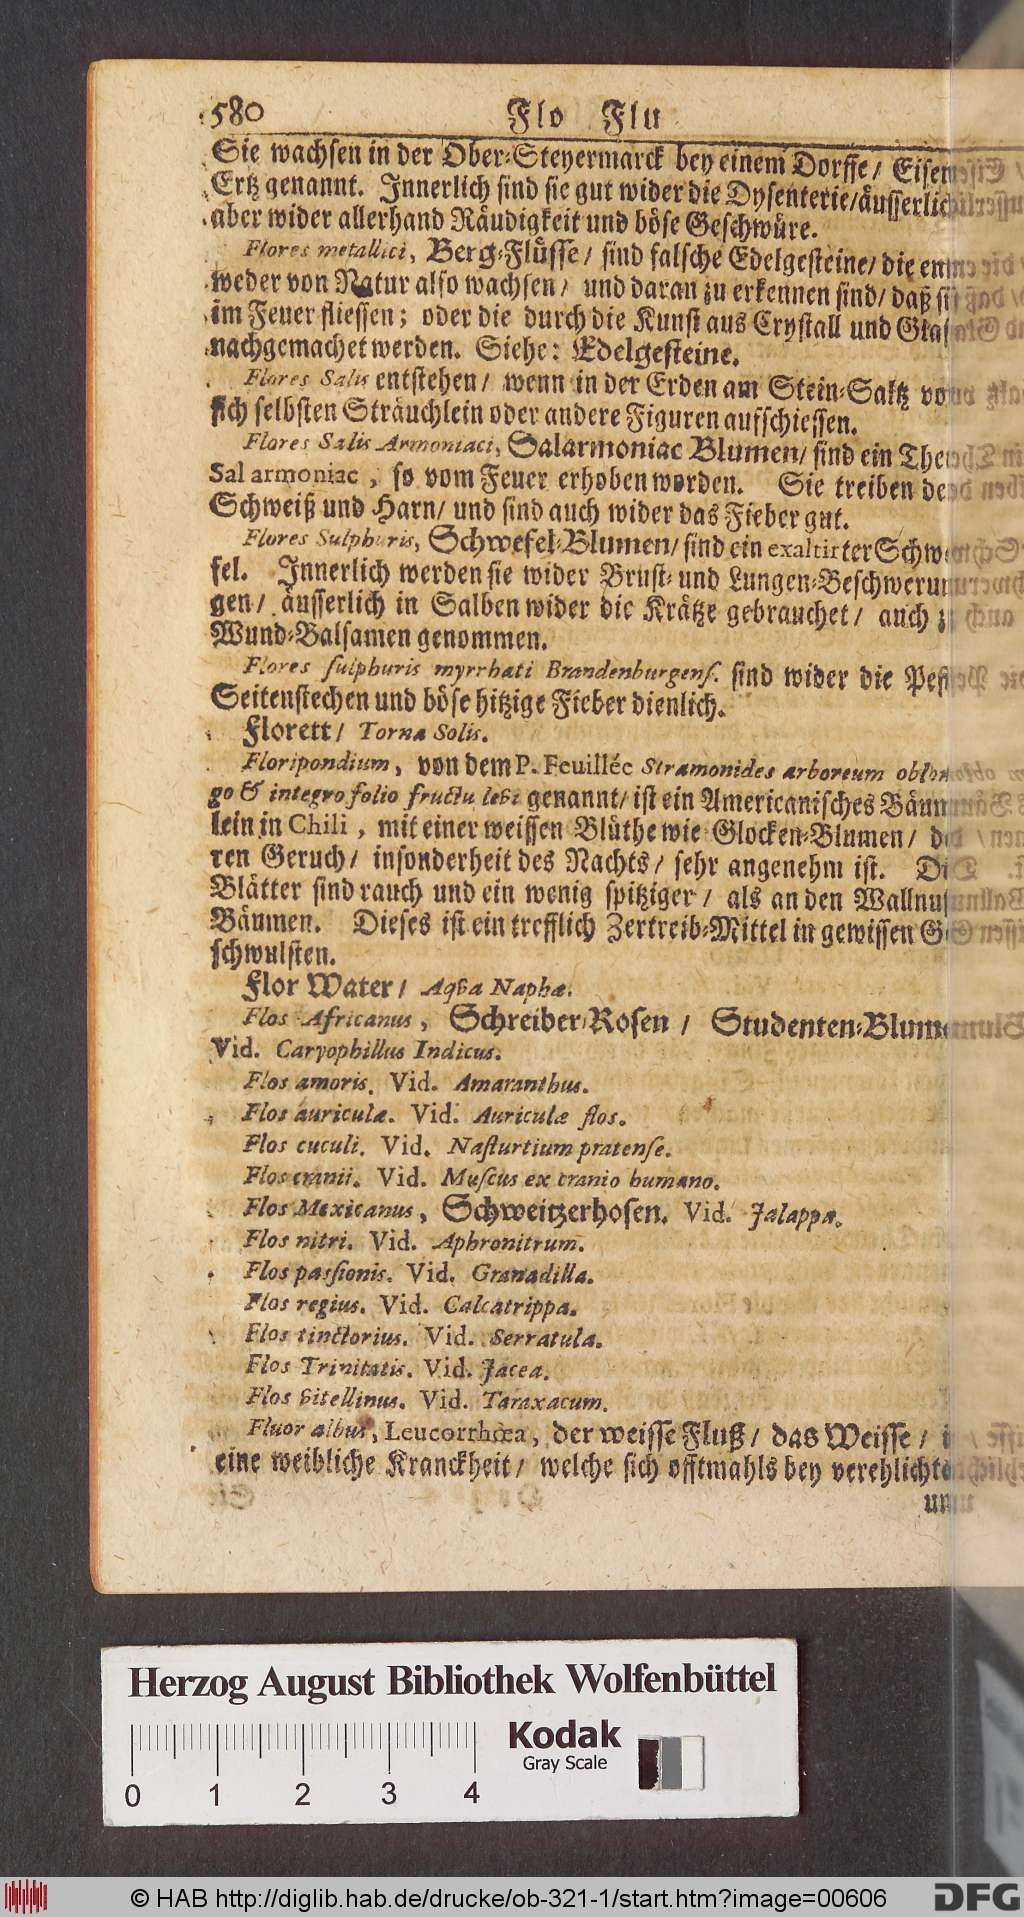 580 Flo Flu
Sie wachsen in der Ober-Steyermarck bey einem Dorffe / Eisen-
Ertz genannt. Innerlich sind sie gut wider die Dysenterie/äusserlich
aber wider allerhand Räudigkeit und böse Geschwüre.
Flores metallici, Berg-Flüsse / sind falsche Edelgesteine/ die ent-
weder von Natur also wachsen / und daran zu erkennen sind/ daß sie
im Feuer fliessen; oder die durch die Kunst aus Crystall und Glas
nachgemachet werden. Siehe: Edelgesteine.
Flores Salis entstehen / wenn in der Erden am Stein-Saltz von
sich selbsten Sträuchlein oder andere Figuren aufschiessen.
Flores Salis Armoniaci, Salarmoniac Blumen/ sind ein Theil
Sal armoniac, so vom Feuer erhoben worden. Sie treiben den
Schweiß und Harn/ und sind auch wider das Fieber gut.
Flores Sulphuris, Schwefel-Blumen/ sind ein exaltirter Schwe-
fel. Innerlich werden sie wider Brust- und Lungen-Beschwerun-
gen / äusserlich in Salben wider die Krätze gebrauchet / auch zu
Wund-Balsamen genommen.
Flores sulphuris myrrhati Brandenburgens. sind wider die Pest
Seitenstechen und böse hitzige Fieber dienlich.
Florett / Torna Solis.
Floripondium, von dem P. Feuillée Stramonides arboreum oblon-
go & integro folio fructu levi genannt/ ist ein Americanisches Bäum-
lein in Chili, mit einer weissen Blüthe wie Glocken-Blumen / de-
ren Geruch / insonderheit des Nachts / sehr angenehm ist. Die
Blätter sind rauch und ein wenig spitziger / als an den Wallnuß-
Bäumen. Dieses ist ein trefflich Zertreib-Mittel in gewissen Ge-
schwulsten.
Flor Water / Aqva Naphæ.
Flos Africanus, Schreiber-Rosen / Studenten-Blumen
Vid. Caryophillus Indicus.
Flos amoris. Vid. Amaranthus.
Flos auriculæ. Vid. Auriculæ flos.
Flos cuculi. Vid. Nasturtium pratense.
Flos cranii. Vid. Muscus ex cranio humano.
Flos Mexicanus, Schweitzerhosen. Vid. Jalappa.
Flos nitri. Vid. Aphronitrum.
Flos passionis. Vid. Granadilla.
Flos regius. Vid. Calcatrippa.
Flos tinctorius. Vid. Serratula.
Flos Trinitatis. Vid. Jacea.
Flos vitellinus. Vid. Taraxacum.
Fluor albus, Leucorrhœa, der weisse Fluß / das Weisse /
eine weibliche Kranckheit / welche sich offtmahls bey verehlichten
und
Herzog August Bibliothek Wolfenbüttel
Kodak
Gray Scale
0 1 2 3 4
© HAB http://diglib.hab.de/drucke/ob-321-1/start.htm?image=00606
DFG